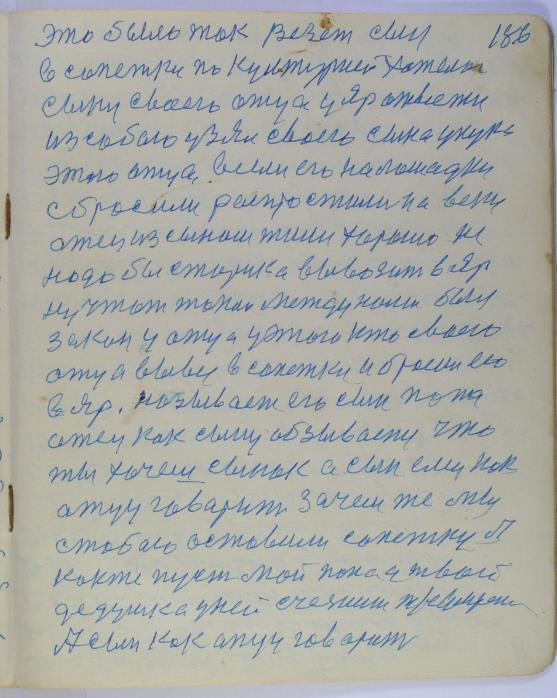 это было так везет сын 186
в сопетки по культурней хотела
сыну своего отца у Яр отвезти
из собою узял своего сынка унука
этого отца, везли его на лошадки
сбросили распростили на веки
отец из сыном жили хорошо не
надо бы старика вывозит в яр
ну что ж такой между ноли был
закон у отца у этого кто своего
отца вывез в сопетки и бросил его
в Яр. називает его сын папа
отец как сыну обзываетца что
ты хочеш сынок а сын ему как
отцу говарит зачем же мы
стобаю оставили сопетку А
как же пуст мой папа а твой
дедушка у ней счезнит
А сын как отцу говарит